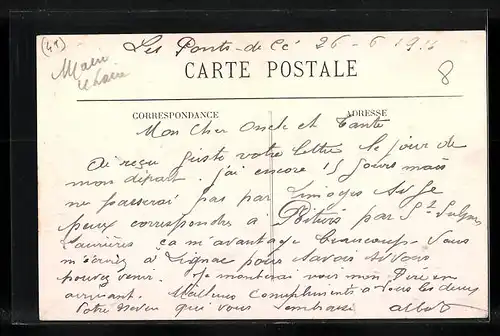 (49)
Les Ponts-de-Cé 26-6 1911
Maine
et Loire
CARTE POSTALE
8
CORRESPONDANCE
ADRESSE
Mon Cher Oncle et Tante
Ai reçu juste votre lettre le jour de
mon départ. j'ai encore 15 jours mais
ne passerai pas par Limoges
peux correspondre a Poitiers par St Sulpice
Laurières ça m'avantage beaucoup. Vous
m'écrirez a Lignac pour savoir si vous
pouvez venir. Je monterai vous mon Père en
arrivant. Meilleurs compliments a vous les deux
Votre neveu qui vous embrasse Albert